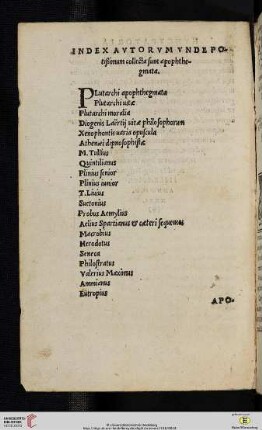 INDEX AVTORVM VNDE PO-
tißimum collecta sunt apophthe-
gmata.
PLutarchi apophthegmata
Plutarchi uitæ
Plutarchi moralia
Diogenis Laërtij uitæ philosophorum
Xenophontis uaria opuscula
Athenæi dipnosophistæ
M. Tullius
Quintilianus
Plinius senior
Plinius iunior
T. Liuius
Suetonius
Probus Aemylius
Aelius Spartianus & cæteri sequentes
Macrobius
Herodotus
Seneca
Philostratus
Valerius Maximus
Ammianus
Eutropius
APO-